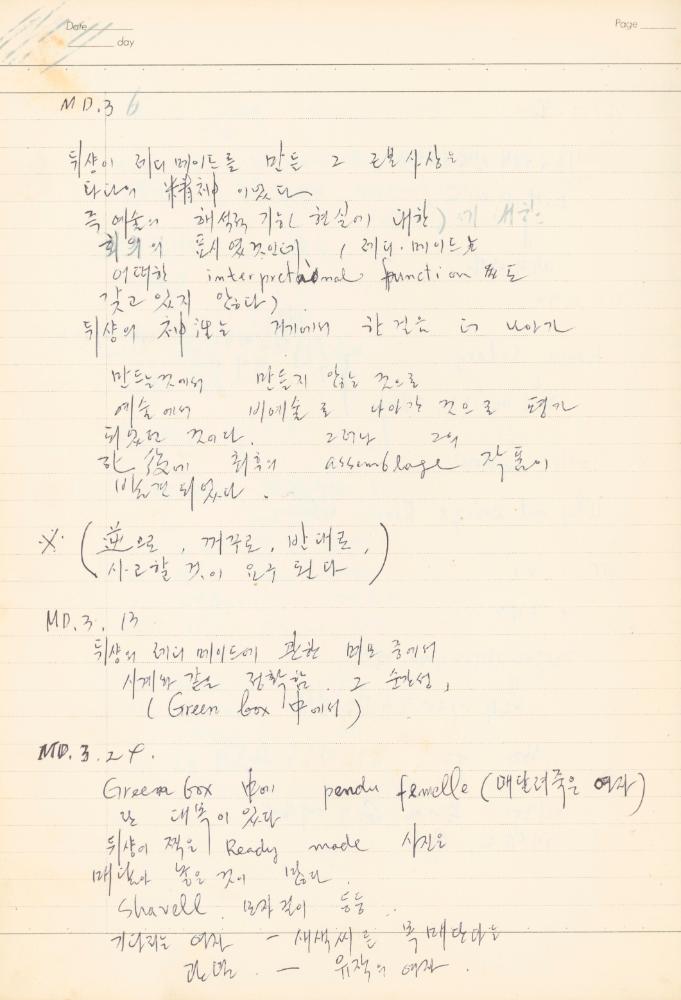 Date
day
Page
MD.3 6
뒤샹이 레디메이드를 만든 그 근본사상는
다다의 精神 이었다
즉 예술의 해석적 기능(현실에 대한)
회의의 표시였것인데, (레디·메이드는
어떠한 interpretational function 도
갖고 있지 않다)
뒤샹의 神性는 거기에서 한걸음 더 나아가
만드는것에서 만들지 않는 것으로
예술에서 비예술로 나아간 것으로 평가
되었던 것이다. 그러나 그의
死後에 최후의 assemblage 작품이
발견되었다.
※ (逆으로, 꺼꾸로, 반대로,
사고할 것이 요구 된다)
MD.3. 13
뒤샹의 레디메이드에 관한 메모 중에서
시계와 같은 정확함. 그 순간성,
(Green box 中에서)
MD.3.24.
Green box 中에 pendu femelle (매달려죽은 여자)
란 대목이 있다
뒤샹이 찍은 Ready made 사진은
매달아 놓은 것이 많다.
Shavell 모자걸이 등등..
기다리는 여자 – 새색씨를 목매단다는
관념. – 유작의 여자.